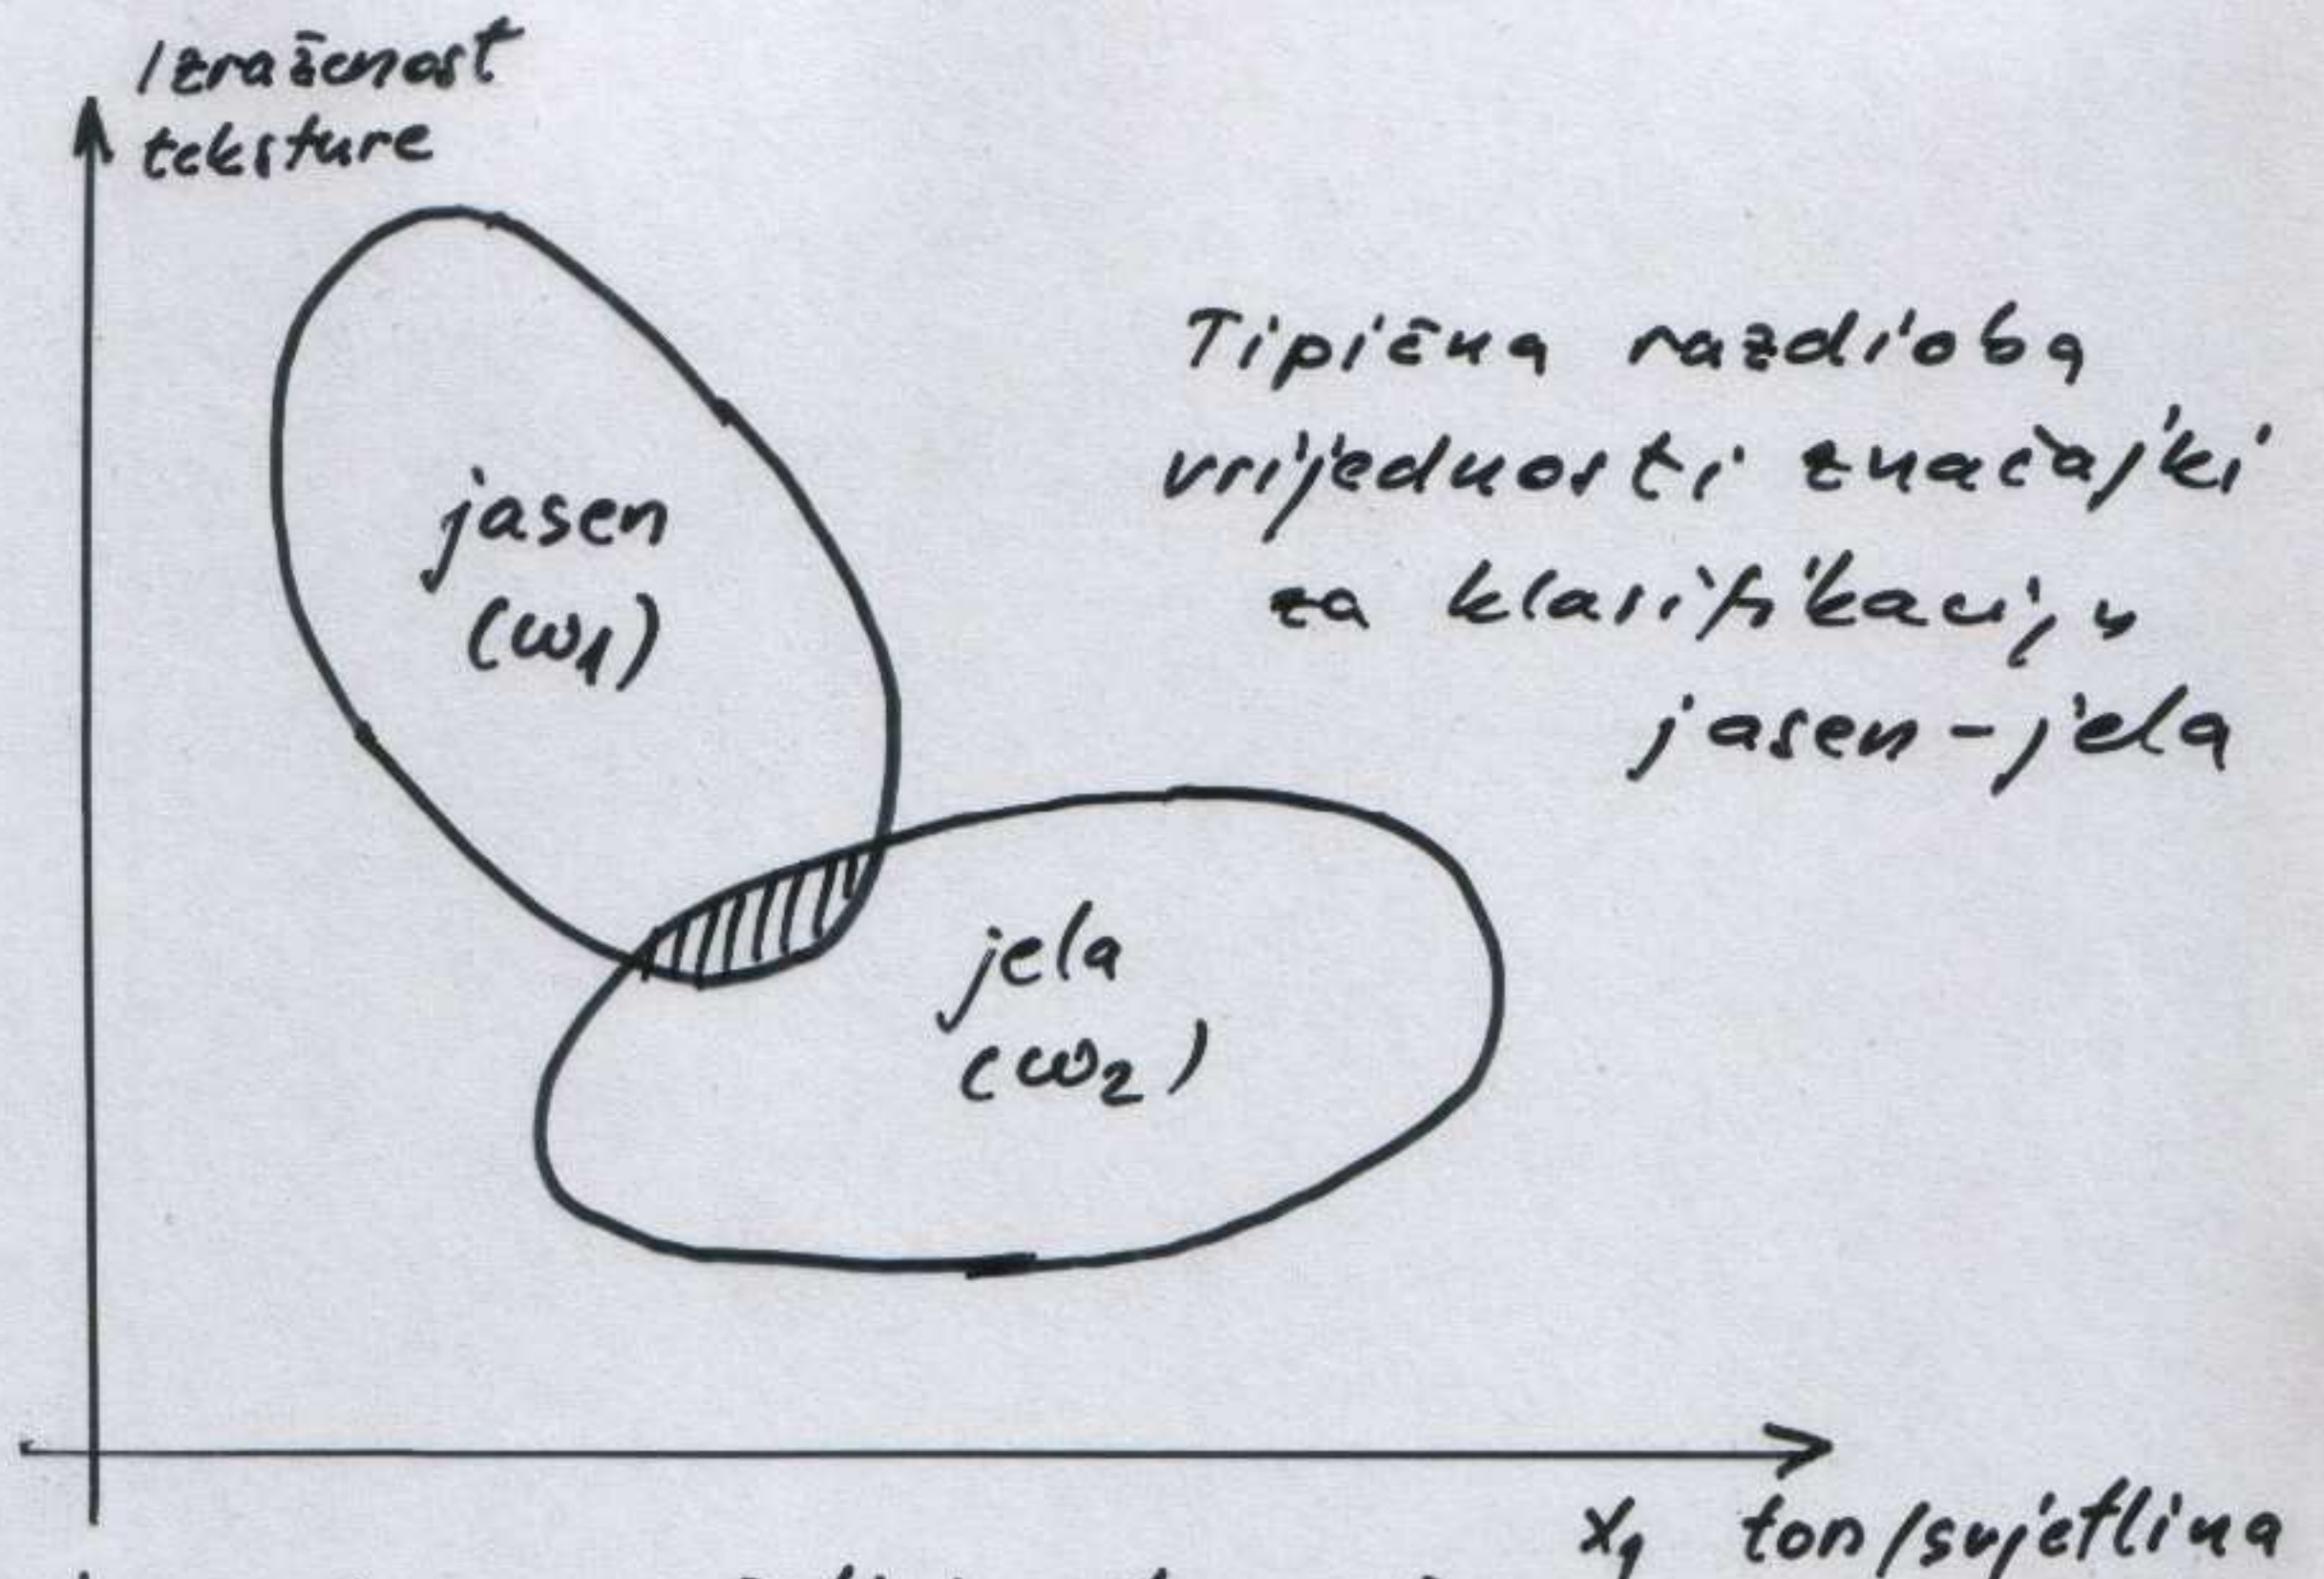 Izraženost
teksture
jasen
(ω1)
Tipična razdioba
vrijednosti značajki
za klasifikaciju
jasen-jela
jela
(ω2)
x1 ton/svjetlina